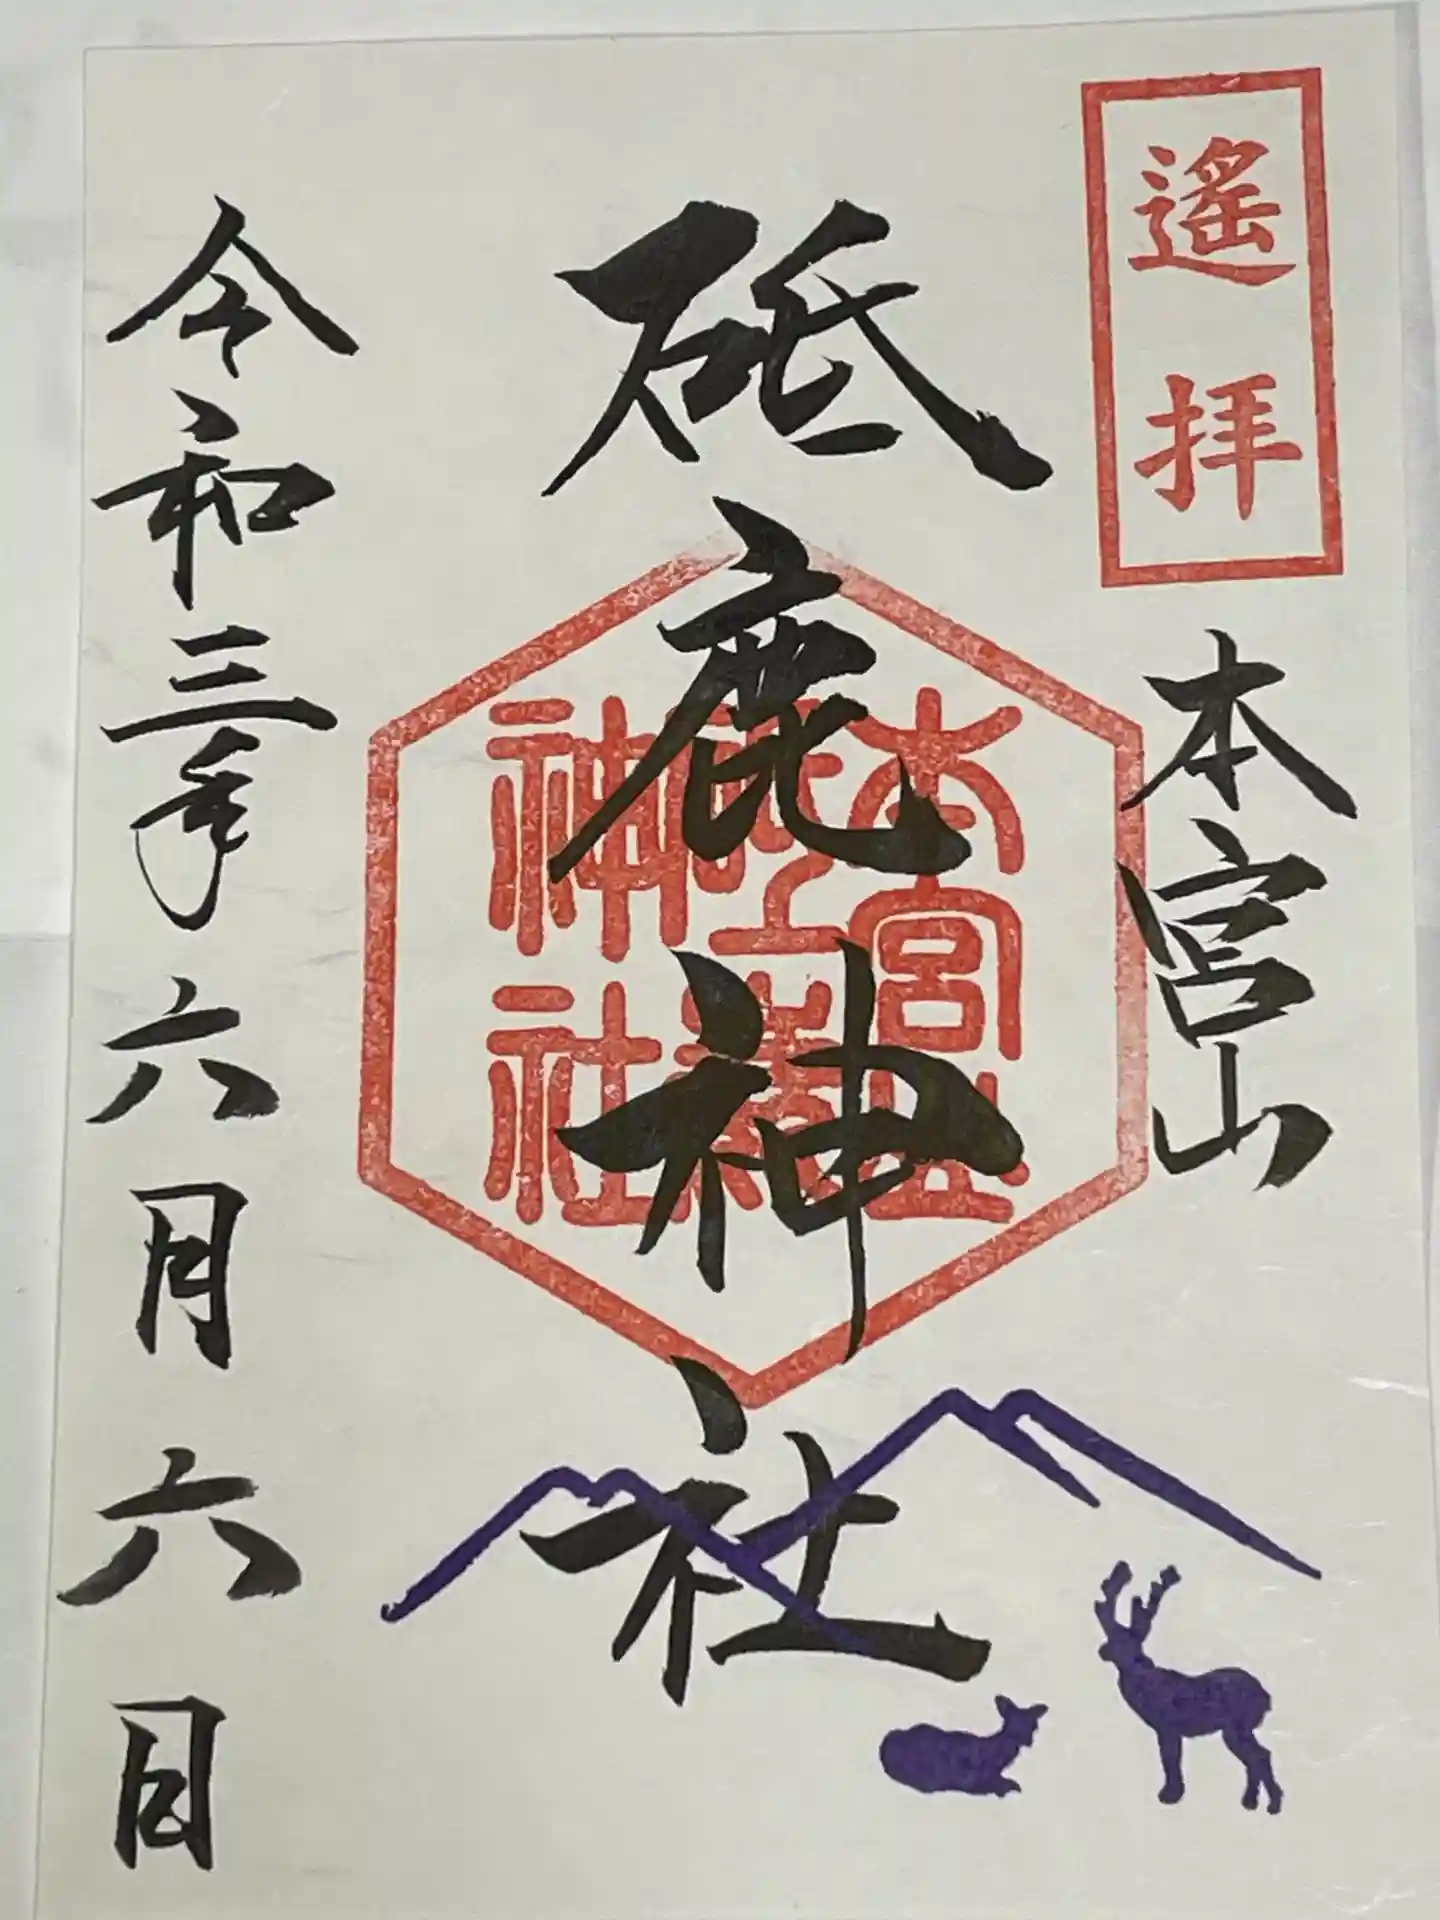 遙拝
本宮山
砥鹿神社
本宮山
砥鹿
神社
令和三年六月六日